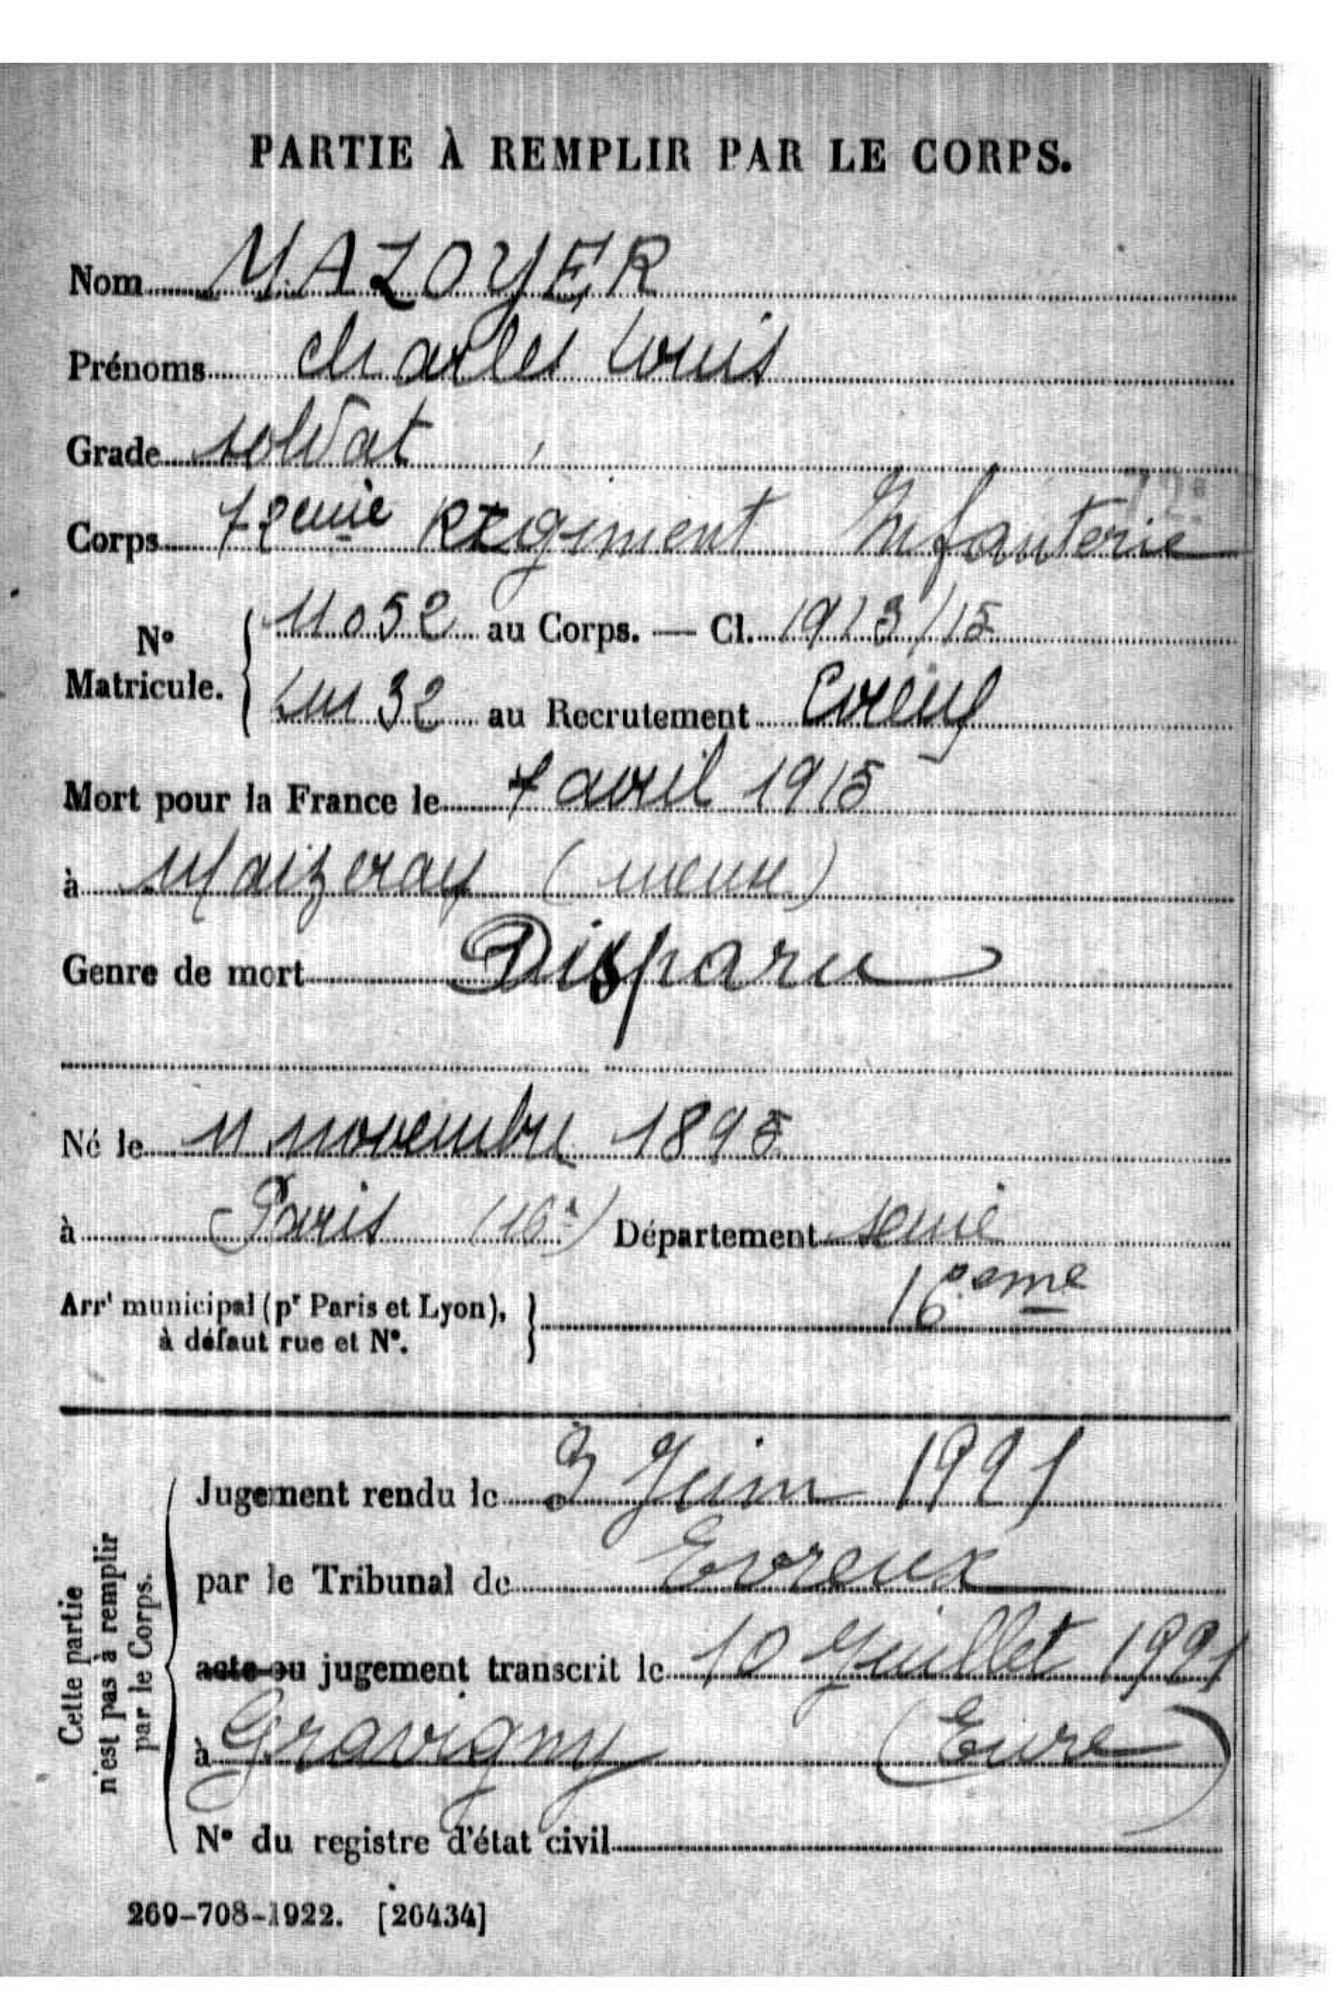 PARTIE À REMPLIR PAR LE CORPS.
Nom MAZOYER
Prénoms Charles Louis
Grade soldat
72e
Corps 72eme Régiment Infanterie
N° Matricule. 11052 au Corps. — Cl. 1913/15
32 au Recrutement Evreux
Mort pour la France le 7 avril 1915
à Maizeray (meuse)
Genre de mort Disparu
Né le 11 novembre 1895
à Paris (16e) Département seine
Arrt municipal (pr Paris et Lyon), 16eme
à défaut rue et N°.
Cette partie
n'est pas à remplir
par le Corps.
Jugement rendu le 3 Juin 1921
par le Tribunal de Evreux
acte ou jugement transcrit le 10 Juillet 1921
à Gravigny (Eure)
N° du registre d'état civil
269-708-1922. [26434]